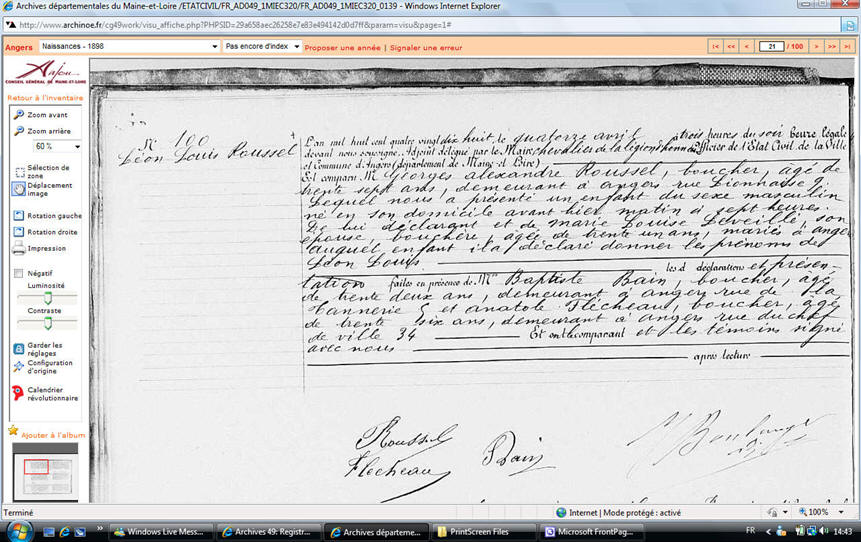 Archives départementales du Maine-et-Loire /ETATCIVIL/FR_AD049_1MIEC320/FR_AD049_1MIEC320_0139 - Windows Internet Explorer
http://www.archinoe.fr/cg49work/visu_affiche.php?PHPSID=29a658aec26258e7e83e494142d0d7ff&param=visu&page=1#
Angers Naissances - 1898 Pas encore d'index Proposer une année | Signaler une erreur |< << < 21 / 100 > >> >|
Anjou
CONSEIL GÉNÉRAL DE MAINE-ET-LOIRE
Retour à l'inventaire
Zoom avant
Zoom arrière
60 %
Sélection de
zone
Déplacement
image
Rotation gauche
Rotation droite
Impression
Négatif
Luminosité
Contraste
Garder les
réglages
Configuration
d'origine
Calendrier
révolutionnaire
Ajouter à l'album
N° 100
Léon Louis Roussel
L'an mil huit cent quatre vingt dix huit le quatorze avril à trois heures du soir heure légale
devant nous soussigné, Adjoint délégué par le Maire chevalier de la légion d'honneur Officier de l'Etat Civil de la Ville
et commune d'Angers (département de Maine et Loire)
Est comparu M. Georges alexandre Roussel, boucher, âgé de
trente sept ans, demeurant à angers rue Lionnaise
Lequel nous a présenté un enfant du sexe masculin
né en son domicile avant hier matin à sept heures.
De lui déclarant et de marie Louise Léveillé, son
épouse, bouchère, agée de trente un ans, mariés à angers
auquel enfant il a déclaré donner les prénoms de
Léon Louis les d déclarations et présen-
tation faites en présence de Mrs Baptiste Bain, boucher, âgé
de trente deux ans, demeurant à angers rue de la
Tannerie et anatole Flécheau, boucher, âgé
de trente six ans, demeurant à angers rue du chef
de ville 34 Et ont le comparant et les témoins signé
avec nous après lecture
Roussel
Flecheau
Bain
Terminé
Internet | Mode protégé : activé
100%
Windows Live Mess...
Archives 49: Registr...
Archives départeme...
PrintScreen Files
Microsoft FrontPag...
FR
14:43